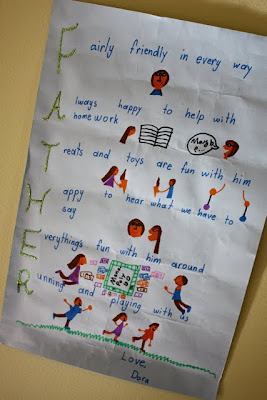 Fairly friendly in every way
Always happy to help with
homework
Maybe
Treats and toys are fun with him
Happy to hear what we have to
say
Everything's fun with him around
Running and playing with us
Love,
Dora